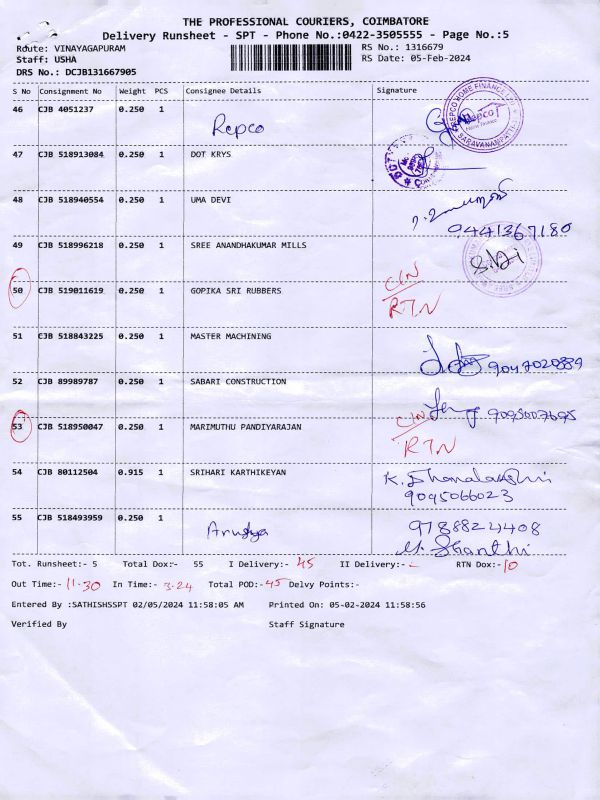 THE PROFESSIONAL COURIERS, COIMBATORE
Delivery Runsheet - SPT - Phone No.:0422-3505555 - Page No.:5
Route: VINAYAGAPURAM RS No.: 1316679
Staff: USHA RS Date: 05-Feb-2024
DRS No.: DCJB131667905
S No Consignment No Weight PCS Consignee Details Signature
46 CJB 4051237 0.250 1 Repco
REPCO HOME FINANCE LTD Repco Home Finance SARAVANAMPATTI
47 CJB 518913084 0.250 1 DOT KRYS
48 CJB 518940554 0.250 1 UMA DEVI
9441367180
49 CJB 518996218 0.250 1 SREE ANANDHAKUMAR MILLS
50 CJB 519011619 0.250 1 GOPIKA SRI RUBBERS C/N
RTN
51 CJB 518843225 0.250 1 MASTER MACHINING
9047020889
52 CJB 89989787 0.250 1 SABARI CONSTRUCTION
9095007695
53 CJB 518950047 0.250 1 MARIMUTHU PANDIYARAJAN C/N
RTN
54 CJB 80112504 0.915 1 SRIHARI KARTHIKEYAN K. Dhanalakshmi
9095066023
55 CJB 518493959 0.250 1 9788824408
M. Shanthi
Tot. Runsheet:- 5 Total Dox:- 55 I Delivery:- 45 II Delivery:- - RTN Dox:- 10
Out Time:- 11-30 In Time:- 3-24 Total POD:- 45 Delvy Points:-
Entered By :SATHISHSSPT 02/05/2024 11:58:05 AM Printed On: 05-02-2024 11:58:56
Verified By Staff Signature